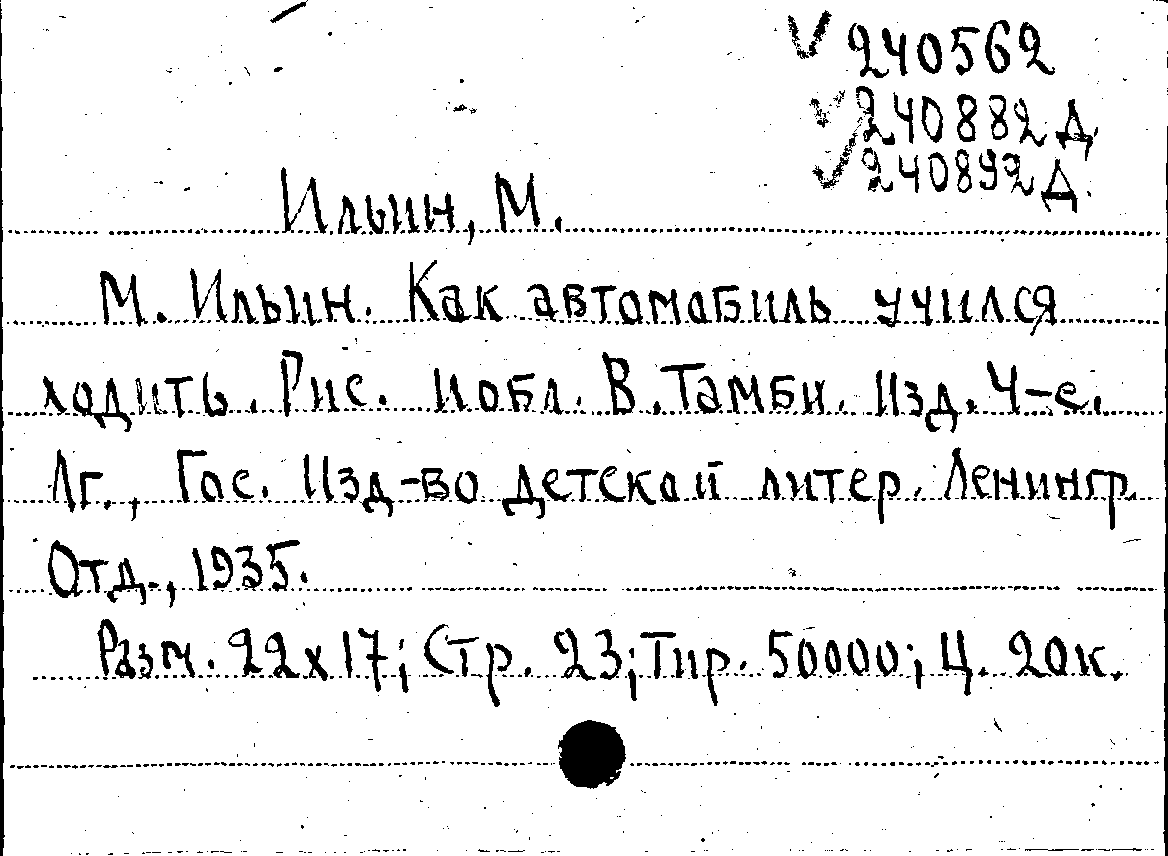 240562
240882д
240892д.
Ильин, М.
М. Ильин. Как автомобиль учился
ходить. Рис. и обл. В. Тамби. Изд. 4-е.
Лг., Гос. Изд-во детской литер. Ленингр.
Отд., 1935.
Разм. 22х17; Стр. 23; Тир. 50000; Ц. 20к.